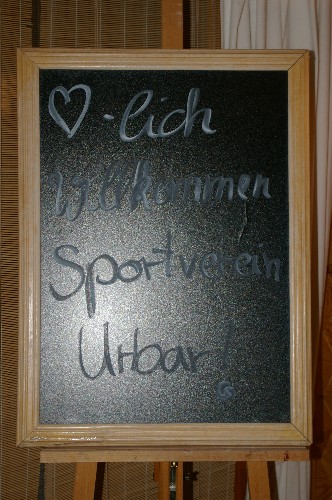 ♡-lich
Willkommen
Sportverein
Urbar!